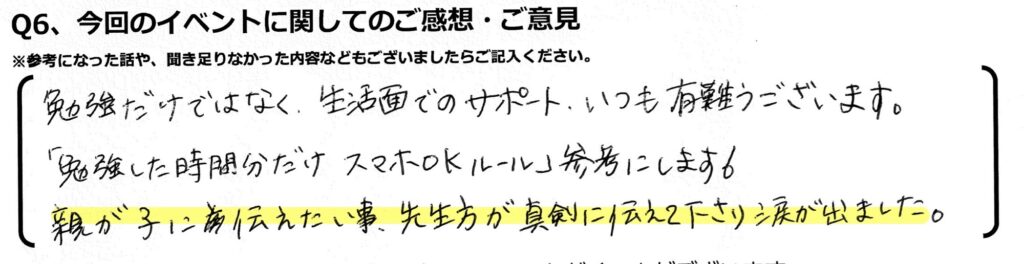 Q6、今回のイベントに関してのご感想・ご意見
※参考になった話や、聞き足りなかった内容などもございましたらご記入ください。
勉強だけではなく、生活面でのサポート、いつも有難うございます。
「勉強した時間分だけ スマホOKルール」参考にします
親が子に伝えたい事、先生方が真剣に伝えて下さり涙が出ました。